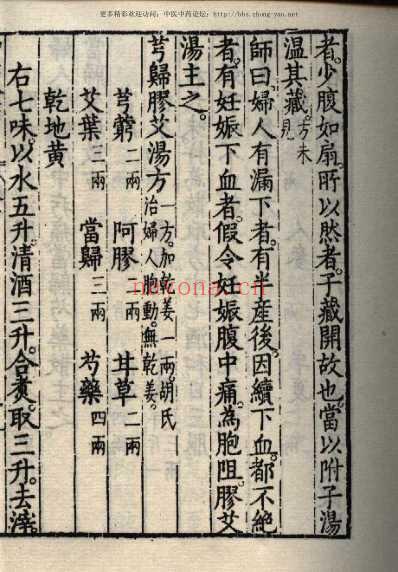 更多精彩欢迎访问：中医中药论坛：http://bbs.zhong-yao.net
者少腹如扇所以然者子藏開故也當以附子湯
溫其藏方未見
師曰婦人有漏下者有半產後因續下血都不絕
者有妊娠下血者假令妊娠腹中痛為胞阻膠艾
湯主之
芎歸膠艾湯方一方加乾姜一兩胡氏治婦人胞動無乾姜
芎藭二兩 阿膠二兩 甘草二兩
艾葉三兩 當歸三兩 芍藥四兩
乾地黃
右七味以水五升清酒三升合煑取三升去滓